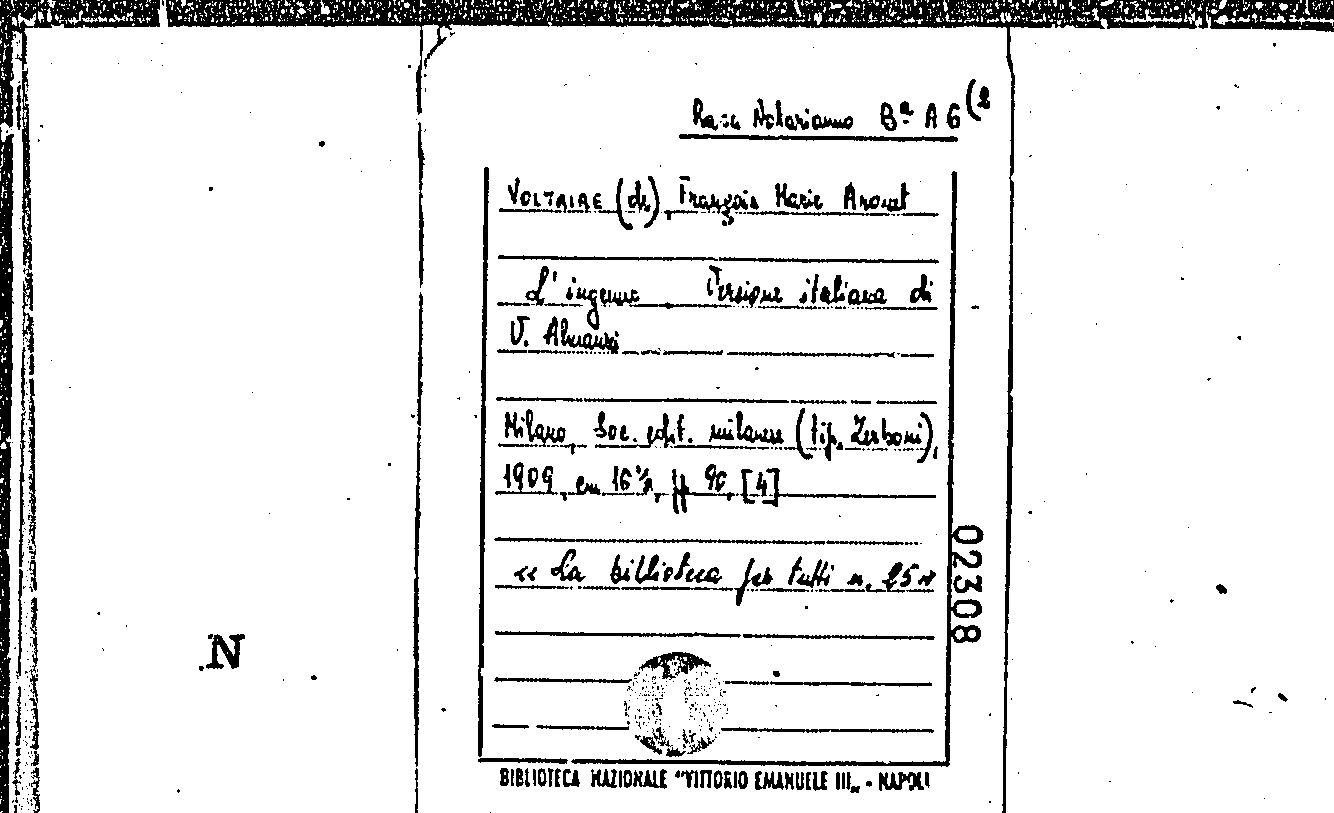 Race Notarianno Bª A 6 (2
VOLTAIRE (de), François Marie Arouet
L'ingenuo Versione italiana di
V. Almanzi
Milano, Soc. edit. milanese (tip. Zerboni),
1909, cm 16½, pp 96, [4]
« La biblioteca per tutti n. 25 »
02308
N
BIBLIOTECA NAZIONALE "VITTORIO EMANUELE III„ - NAPOLI